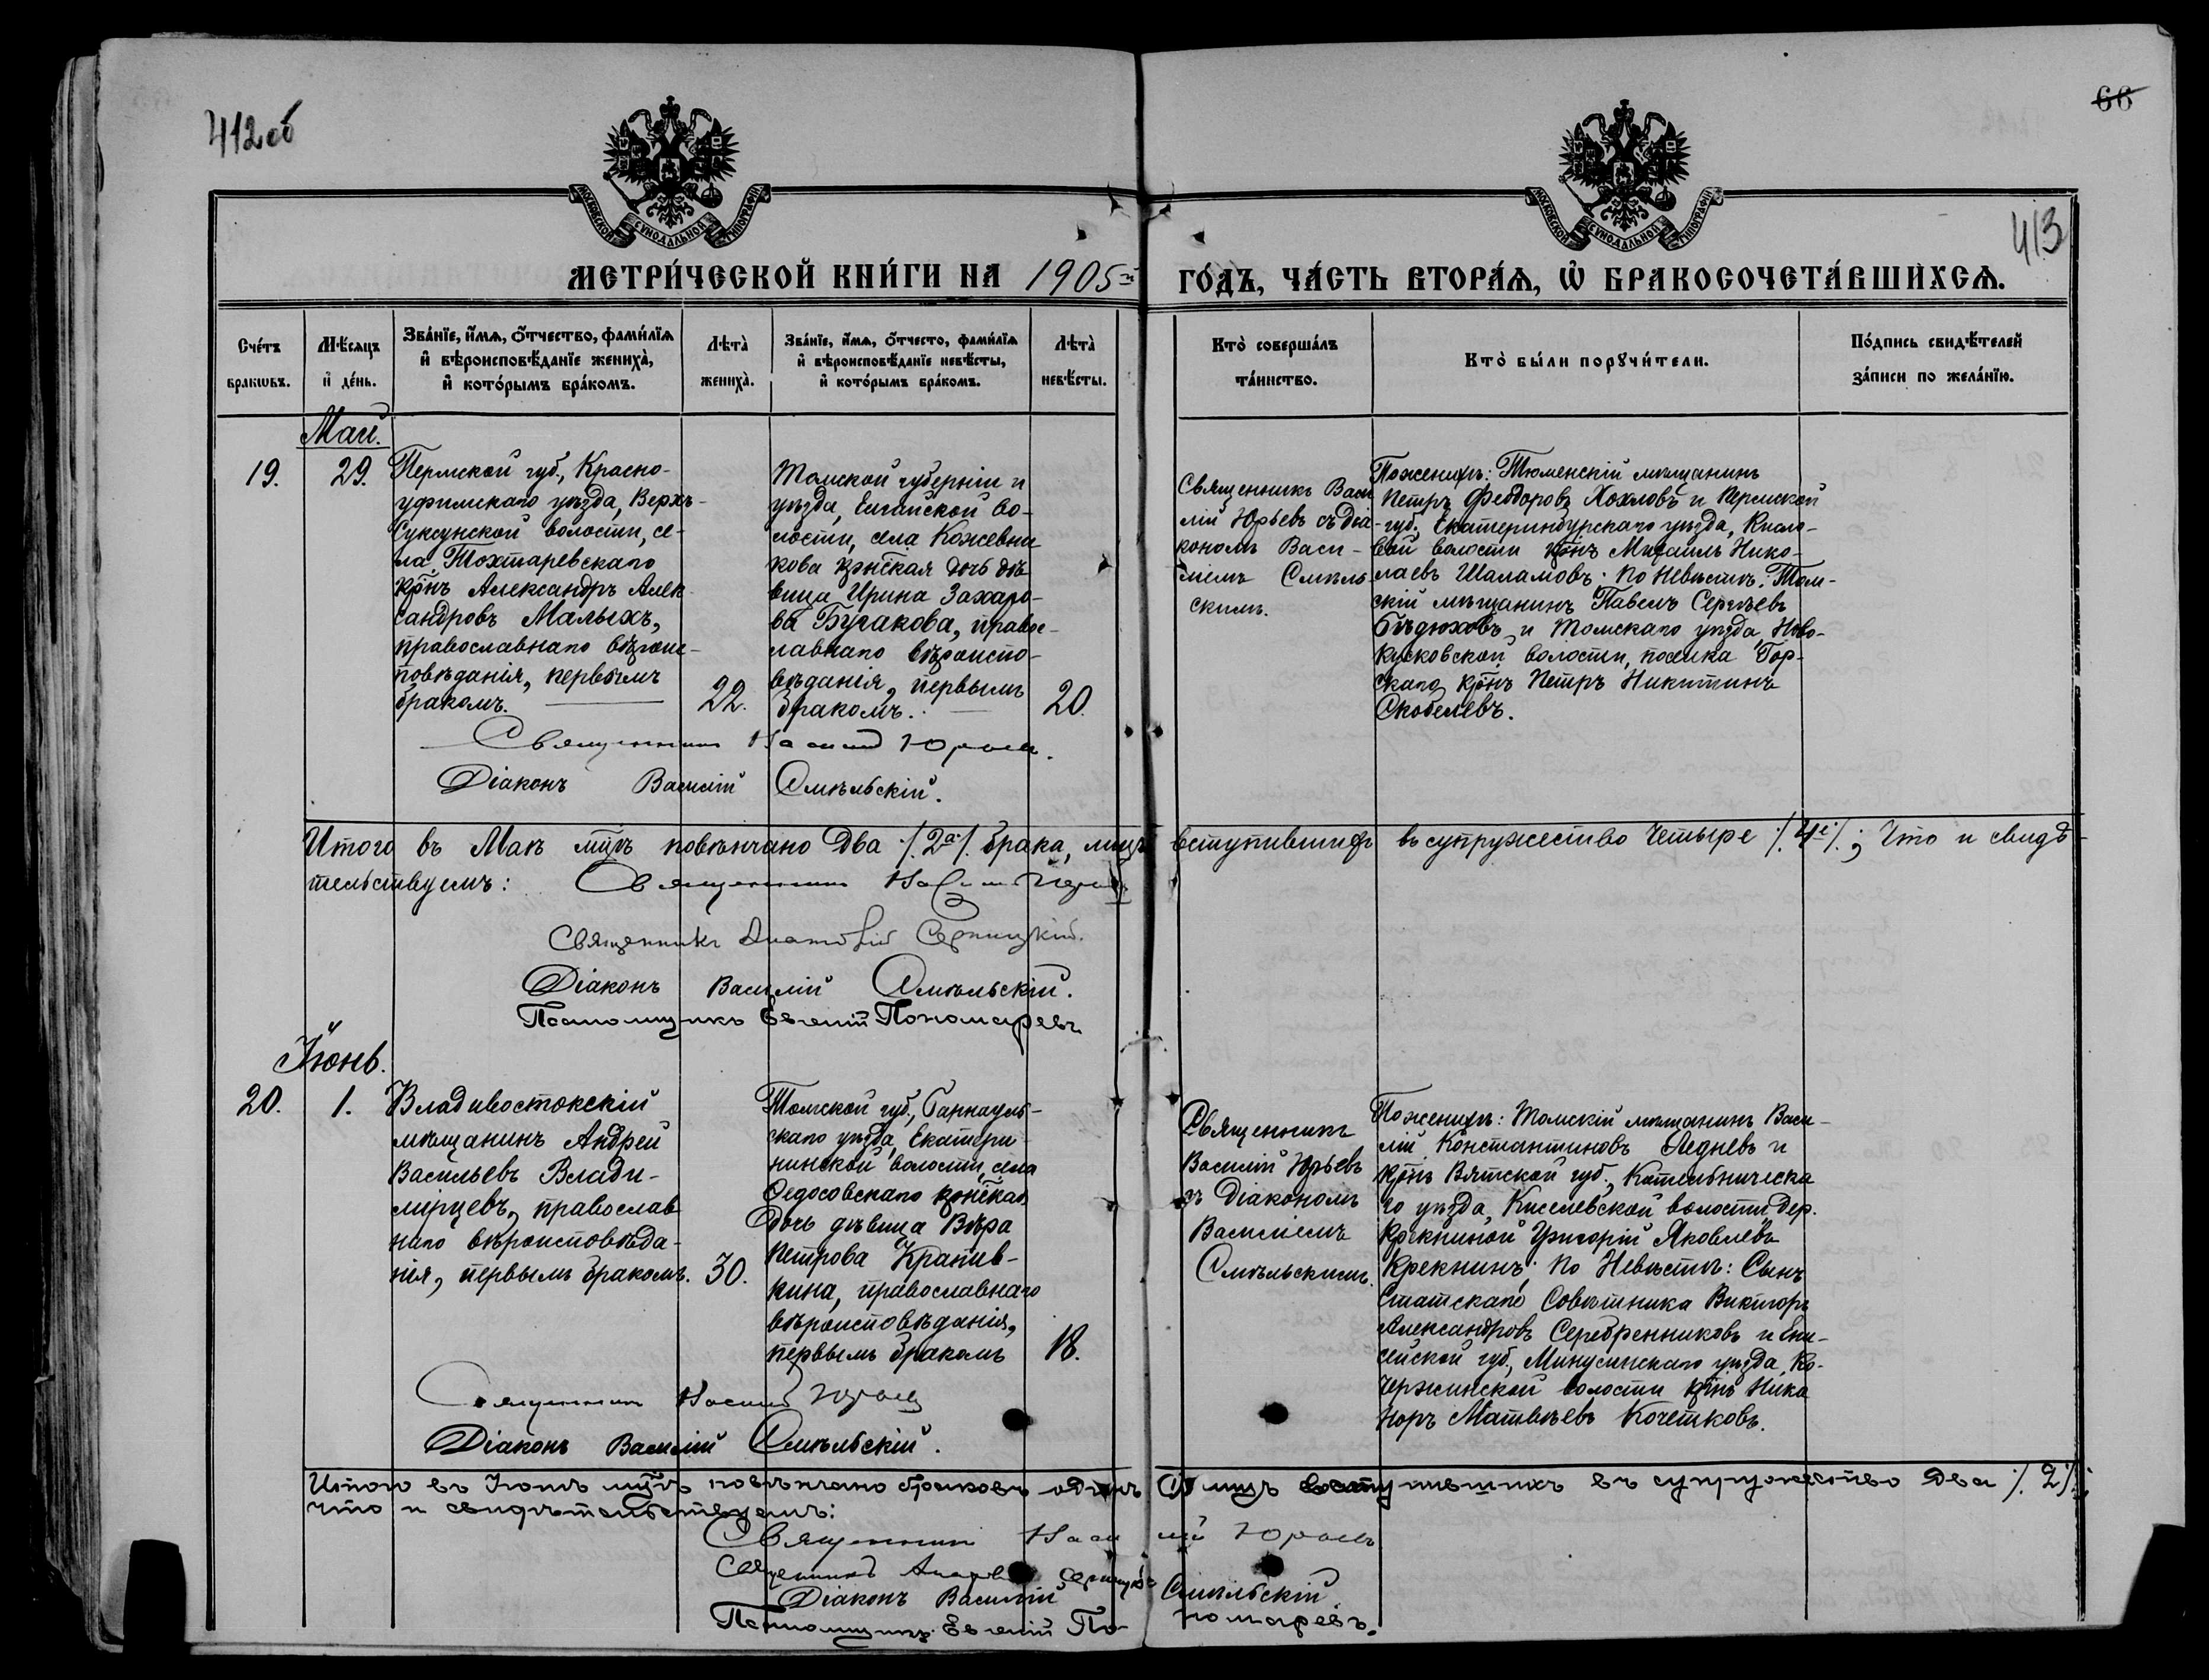 412об
66
413
МОСКОВСКОЙ СѴНОДАЛЬНОЙ ТИПОГРАФІИ
МОСКОВСКОЙ СѴНОДАЛЬНОЙ ТИПОГРАФІИ
МЕТРИ́ЧЕСКОЙ КНИ́ГИ НА 1905й ГО́ДЪ, ЧА́СТЬ ВТОРА́Ѧ, Ѽ БРАКОСОЧЕТА́ВШИХСѦ.
Сче́тъ
бракѡвъ.
Мѣ́сяцъ
и҆ де́нь.
Зва́нїе, и҆́мѧ, о҆́тчество, фами́лїѧ
и҆ вѣроисповѣ́данїе жениха̀,
и҆ кото́рымъ бра́комъ.
Лѣта̀
жениха̀.
Зва́нїе, и҆́мѧ, о҆́тчесто, фами́лїѧ
и҆ вѣроисповѣ́данїе невѣ́сты,
и҆ кото́рымъ бра́комъ.
Лѣта̀
невѣ́сты.
Кто̀ соверша́лъ
та́инство.
Кто̀ бы́ли порꙋчи́тели.
По́дпись свидѣ́телей
за́писи по жела́нїю.
Май.
19.
29.
Пермской губ., Красно-
уфимскаго уѣзда, Верхъ-
Суксунской волости, се-
ла Тохтаревскаго
крнъ Александръ Алек
сандровъ Малыхъ,
православнаго вѣроис-
повѣданія, первымъ
бракомъ.
22.
Томской губерніи и
уѣзда, Елгайской во-
лости, села Кожевни
кова крнская дочь дѣ
вица Ирина Захаро-
ва Бугакова, правос-
лавнаго вѣроиспо-
вѣданія, первымъ
бракомъ.
20.
Священникъ Васи
лій Юрьевъ съ діа-
кономъ Васи-
ліемъ Смѣль
скимъ.
По женихѣ: Тюменскій мѣщанинъ
Петръ Феодоровъ Хохловъ и Пермской
губ. Екатеринбургскаго уѣзда, Кисло-
вой волости крнъ Михаилъ Нико-
лаевъ Шаламовъ; По Невѣстѣ: Том-
скій мѣщанинъ Павелъ Сергѣевъ
Бѣдюховъ и Томскаго уѣзда, Ново-
Кусковской волости, поселка Гор-
скаго крнъ Петръ Никитинъ
Скобелевъ.
Священникъ Василій Юрьевъ.
Діаконъ Василій Смѣльскій.
Итого въ Маѣ мцѣ повѣнчано два /.2а/. брака, лицъ вступившихъ въ супружество четыре /.4е/.; Что и свидѣ-
тельствуемъ: Священникъ Василій Юрьевъ
Священникъ Серницкій.
Діаконъ Василій Смѣльскій.
Псаломщикъ Евгеній Пономаревъ
Іюнь.
20.
1.
Владивостокскій
мѣщанинъ Андрей
Васильевъ Влади-
мірцевъ, православ
наго вѣроисповѣда-
нія, первымъ бракомъ.
30.
Томской губ., Барнауль-
скаго уѣзда, Екатери
нинской волости, села
Ѳедосовскаго крнская
дочь дѣвица Вѣра
Петрова Крапив-
кина, православнаго
вѣроисповѣданія,
первымъ бракомъ
18.
Священникъ
Василій Юрьевъ
съ діакономъ
Василіемъ
Смѣльскимъ.
По женихѣ: Томскій мѣщанинъ Васи-
лій Константиновъ Ледневъ и
крнъ Вятской губ., Котельническа
го уѣзда, Киселевской волости дер.
Крекниной Григорій Яковлевъ
Крекнинъ; По Невѣстѣ: Сынъ
Статскаго Совѣтника Викторъ
Александровъ Серебренниковъ и Ени-
сейской губ., Минусинскаго уѣзда, Ко-
чержинской волости крнъ Ника
норъ Матвѣевъ Кочетковъ.
Священникъ Василій Юрьевъ
Діаконъ Василій Смѣльскій.
Итого въ Іюнѣ мцѣ повѣнчано браковъ одинъ лицъ вступившихъ въ супружество два /.2/.;
что и свидѣтельствуемъ:
Священникъ Василій Юрьевъ
Священникъ Серницкій
Діаконъ Василій Смѣльскій
Псаломщикъ Евгеній Пономаревъ.